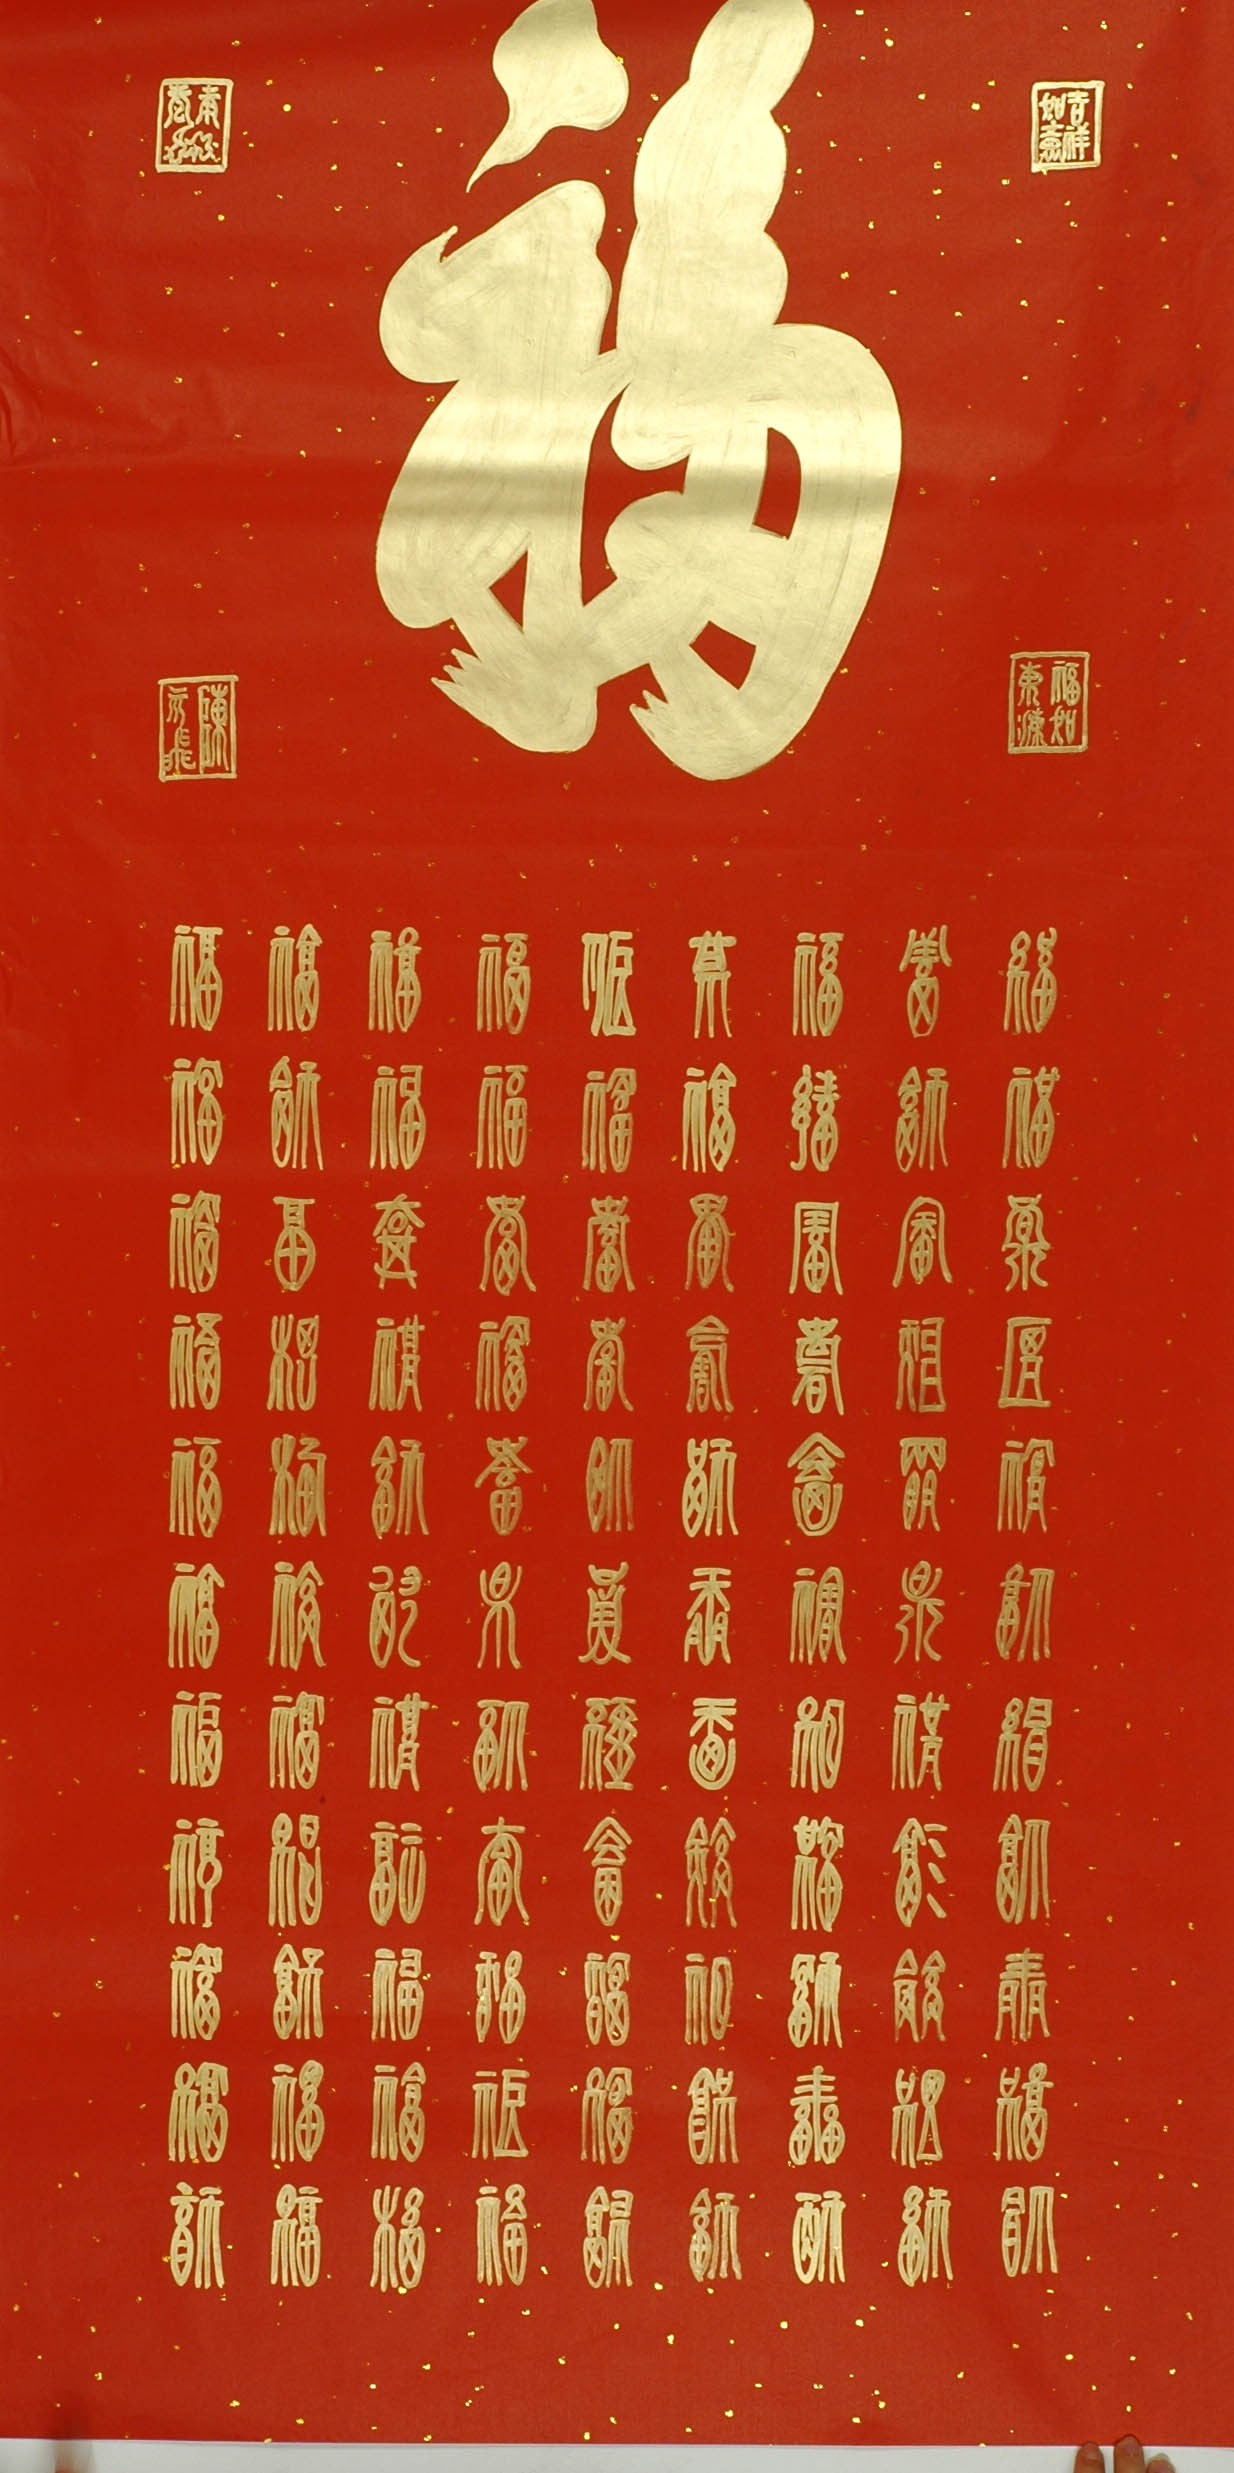 福
吉祥如意
福如
福福福福福福福福福福福
福福福福福福福福福福福
福福福福福福福福福福福
福福福福福福福福福福福
福福福福福福福福福福福
福福福福福福福福福福福
福福福福福福福福福福福
福福福福福福福福福福福
福福福福福福福福福福福
陳